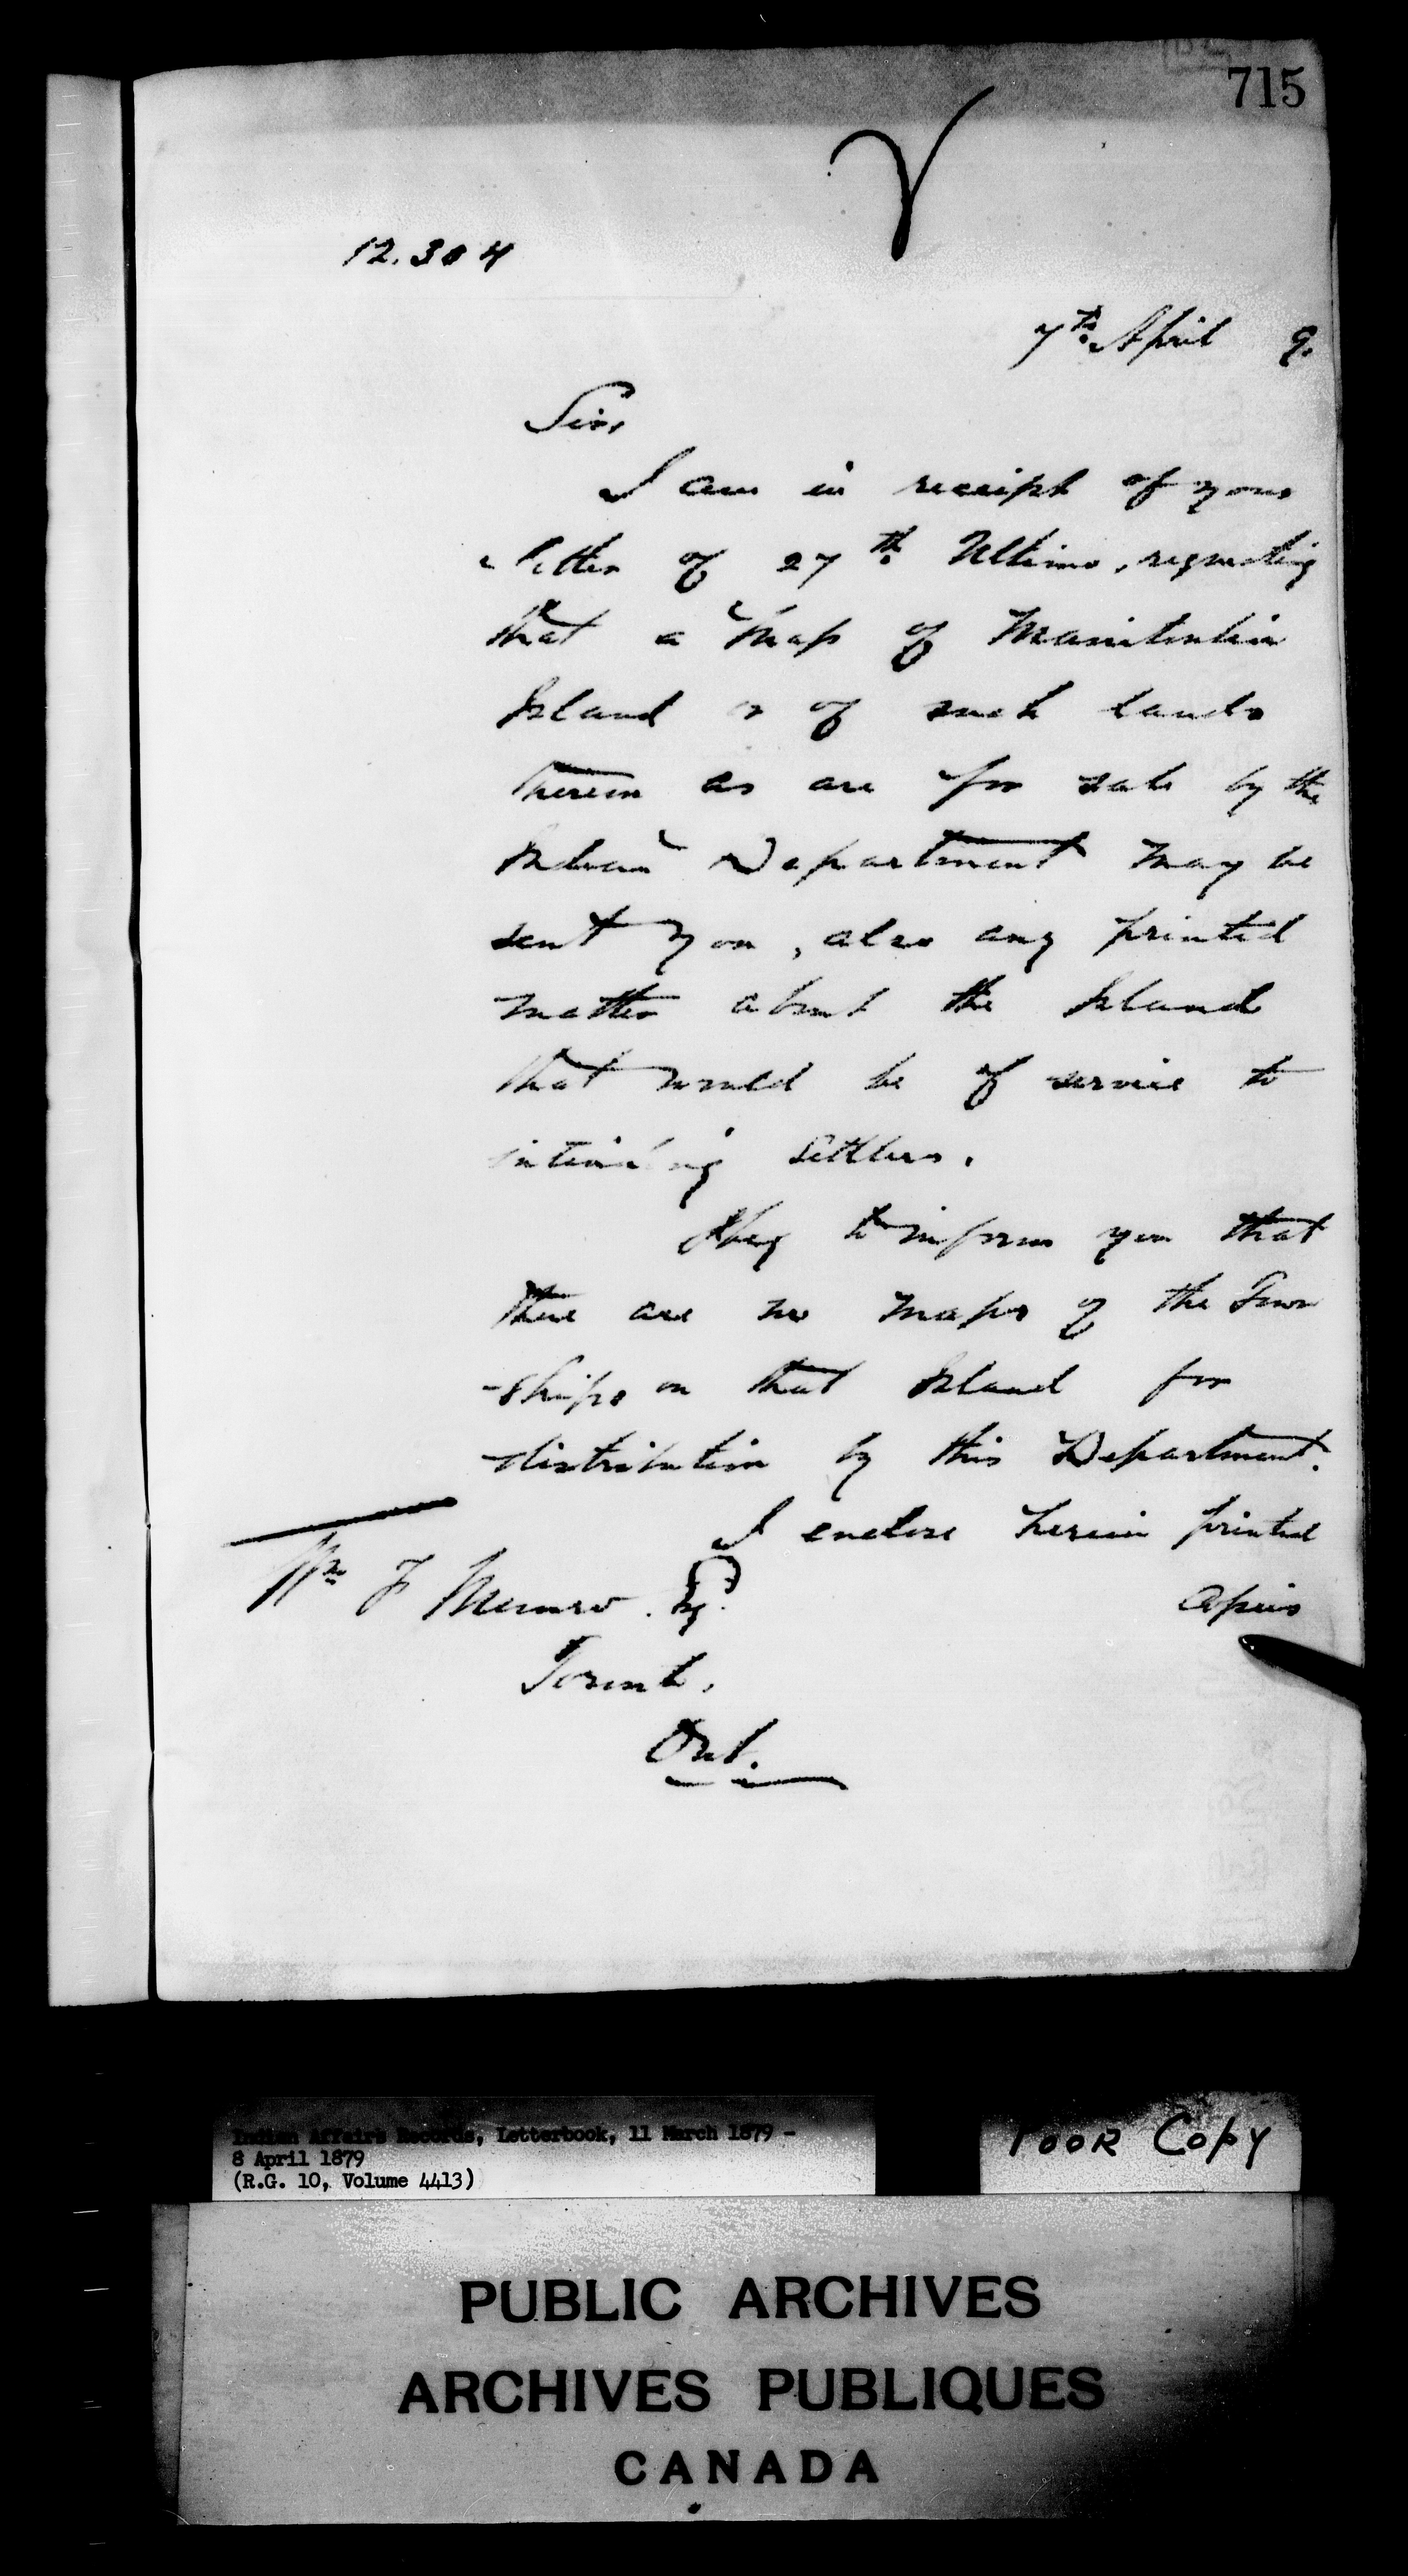 715
12.304
7th April 9.
Sir,
I am in receipt of your
letter of 27th Ultimo, requesting
that a Map of Manitoulin
Island or of such lands
therein as are for sale by the
Indian Department may be
sent you, also any printed
matter about the Island
that would be of service to
intending Settlers.
I beg to inform you that
there are no maps of the Town
-ships on that Island for
distribution by this Department.
I enclose herein printed
Copies
Wm F Munro. Esq.
Toronto,
Ont.
Indian Affairs Records, Letterbook, 11 March 1879 -
8 April 1879
(R.G. 10, Volume 4413)
POOR COPY
PUBLIC ARCHIVES
ARCHIVES PUBLIQUES
CANADA